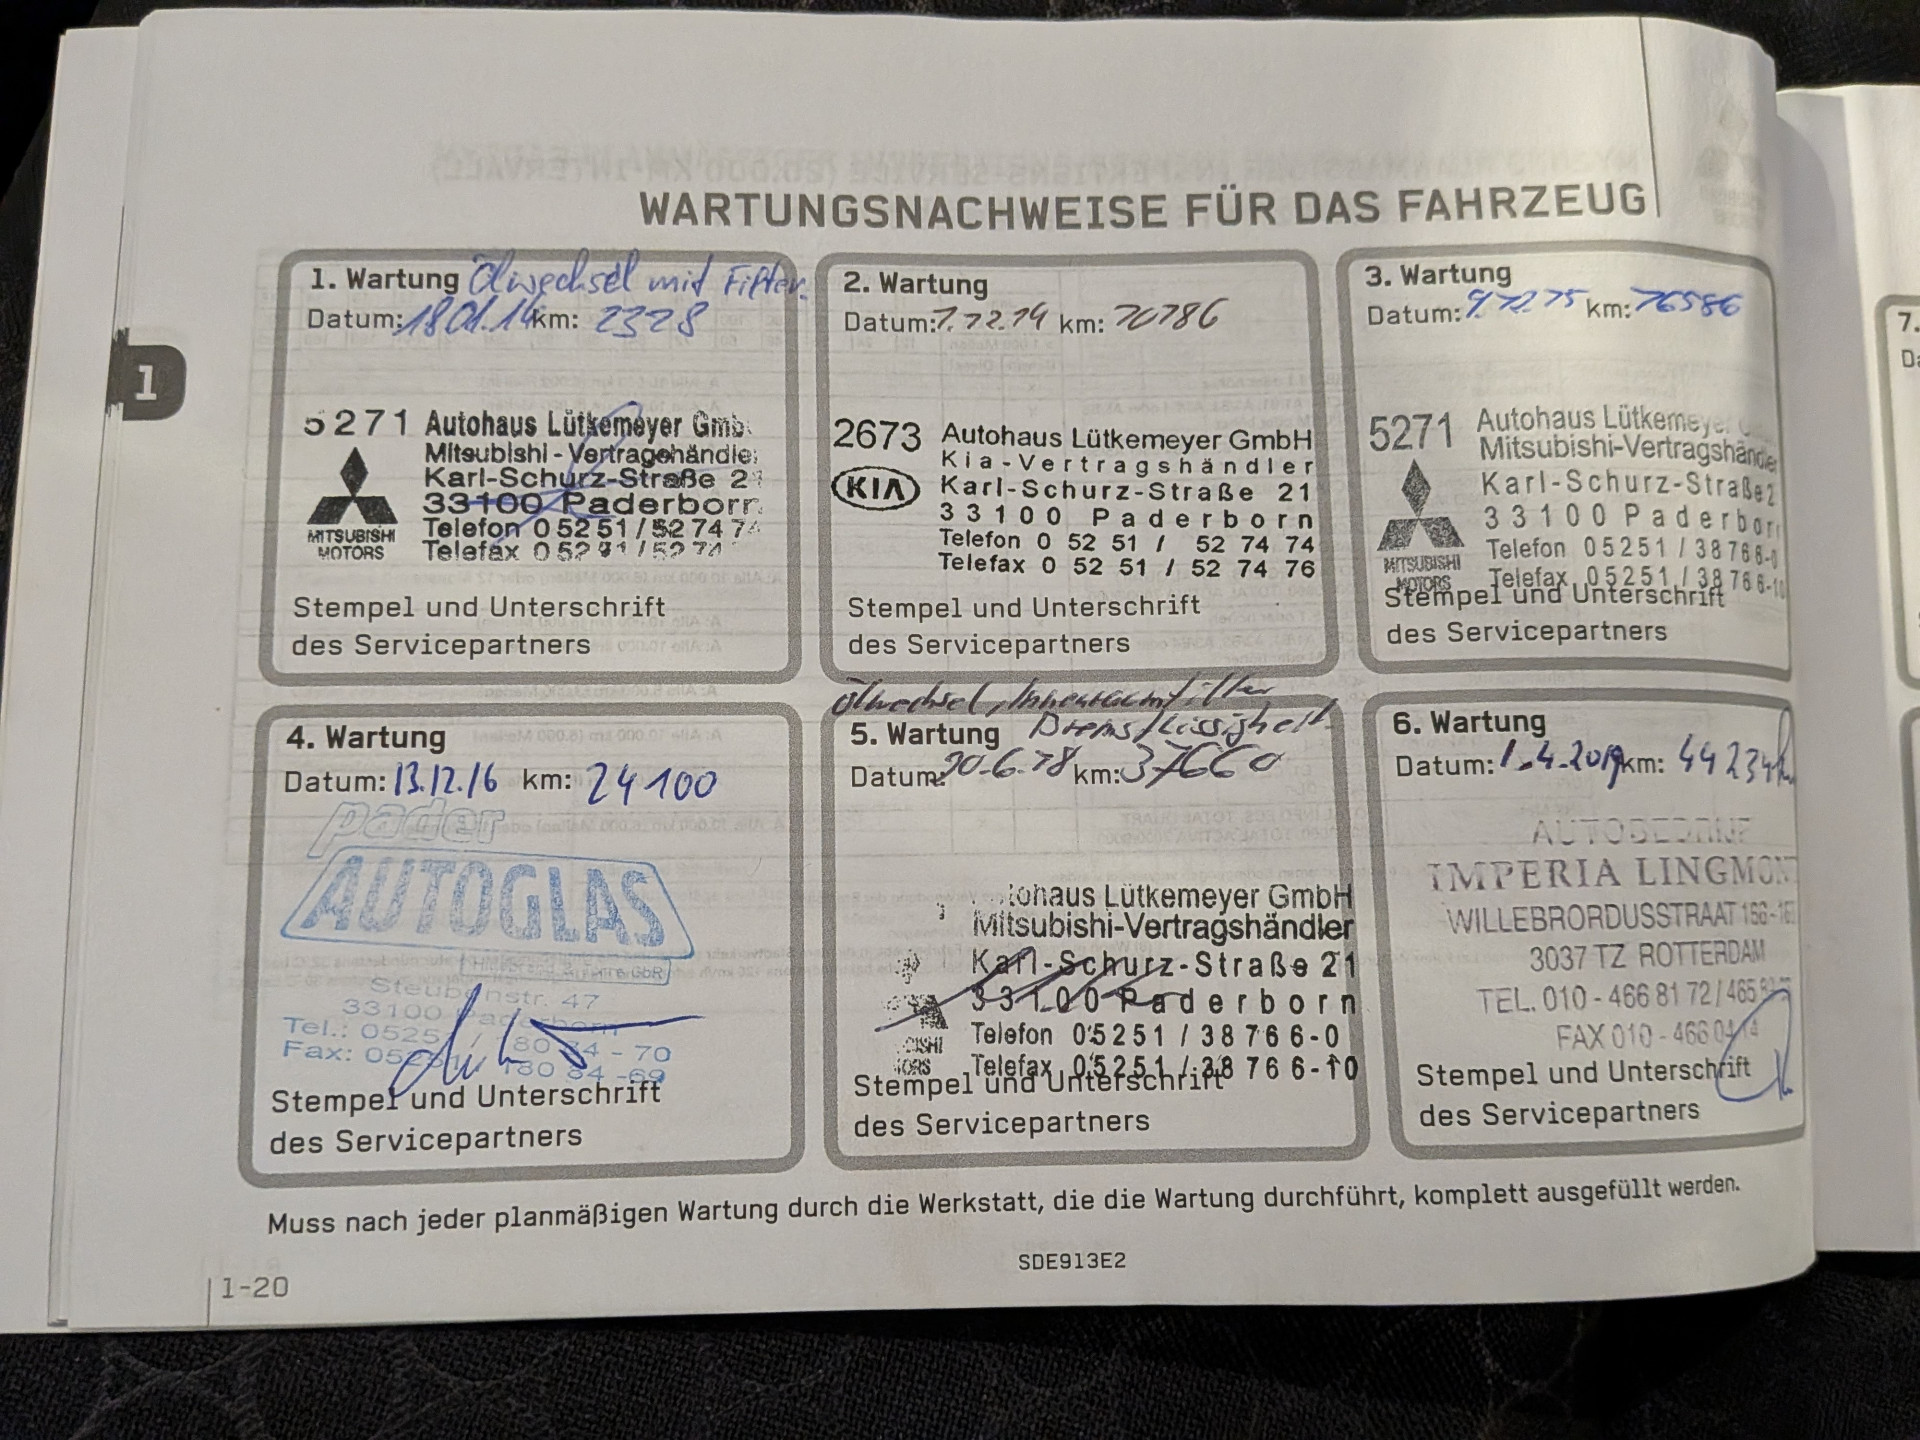 WARTUNGSNACHWEISE FÜR DAS FAHRZEUG
1
1. Wartung Ölwechsel mit Filter.
Datum: 18.01.14 km: 2328
5271 Autohaus Lütkemeyer Gmb
Mitsubishi - Vertragshändle
Karl-Schurz-Straße 2
33100 Paderborn
Telefon 0 52 51 / 52 74 74
Telefax 0 52 51 / 52 74
MITSUBISHI
MOTORS
Stempel und Unterschrift
des Servicepartners
2. Wartung
Datum: 1.12.14 km: 10786
2673 Autohaus Lütkemeyer GmbH
Kia-Vertragshändler
KIA Karl-Schurz-Straße 21
33100 Paderborn
Telefon 0 52 51 / 52 74 74
Telefax 0 52 51 / 52 74 76
Stempel und Unterschrift
des Servicepartners
3. Wartung
Datum: 9.12.15 km: 16586
5271 Autohaus Lütkemeyer G
Mitsubishi-Vertragshändler
Karl-Schurz-Straße 2
33100 Paderborn
Telefon 05251 / 38766-0
Telefax 05251 / 38766-10
MITSUBISHI
MOTORS
Stempel und Unterschrift
des Servicepartners
4. Wartung
Datum: 13.12.16 km: 24100
pader
AUTOGLAS
Steubenstr. 47
33100 Paderborn
Tel.: 05251 / 180 84 - 70
Fax: 05251 / 180 84 -69
Stempel und Unterschrift
des Servicepartners
Ölwechsel, Innenraumfilter
5. Wartung Bremsflüssigkeit
Datum: 20.6.18 km: 37660
tohaus Lütkemeyer GmbH
Mitsubishi-Vertragshändler
Karl-Schurz-Straße 21
33100 Paderborn
Telefon 05251 / 38766-0
Telefax 05251 / 38766-10
Stempel und Unterschrift
des Servicepartners
6. Wartung
Datum: 1.4.2019 km: 44234
AUTOBEDRIJF
IMPERIA LINGMONT
WILLEBRORDUSSTRAAT 156-
3037 TZ ROTTERDAM
TEL. 010 - 466 81 72 / 465
FAX 010 - 466 04 14
Stempel und Unterschrift
des Servicepartners
Muss nach jeder planmäßigen Wartung durch die Werkstatt, die die Wartung durchführt, komplett ausgefüllt werden.
SDE913E2
1-20
7.